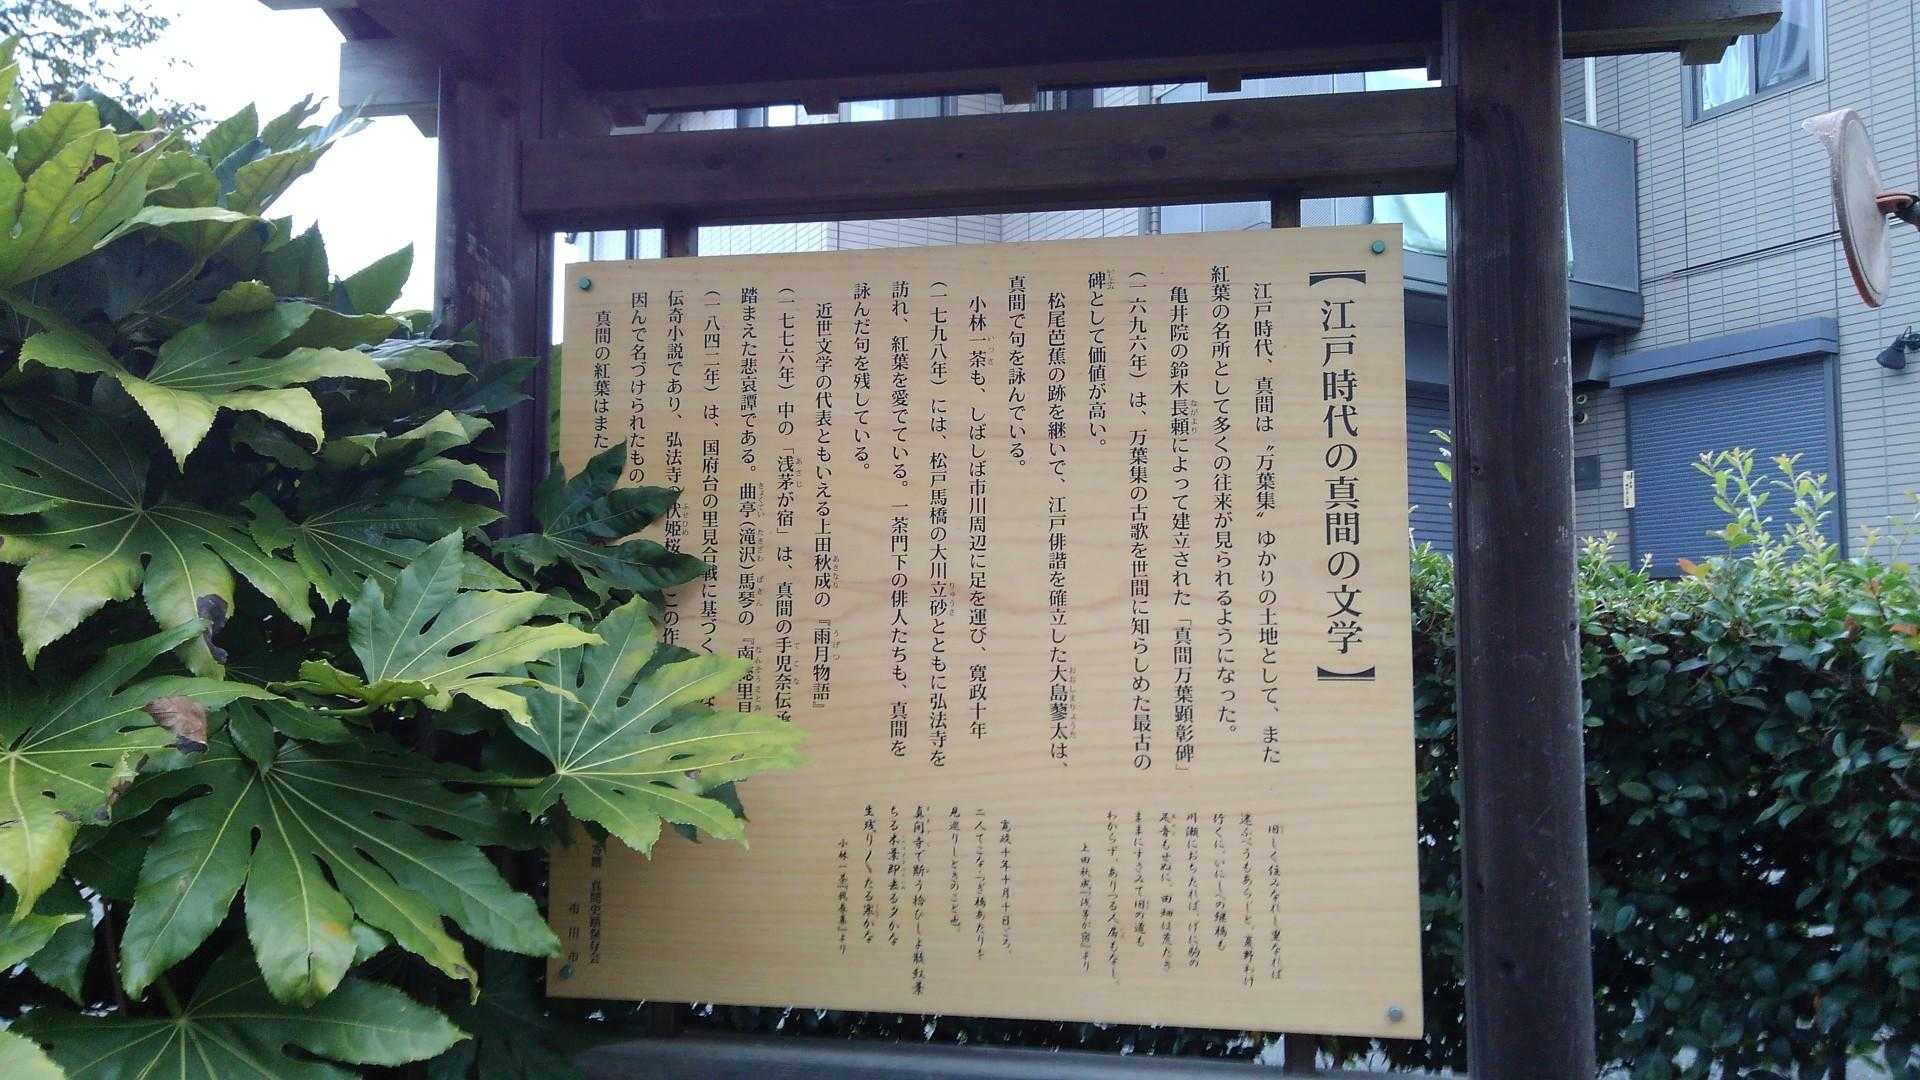 【江戸時代の真間の文学】
江戸時代、真間は〝万葉集〟ゆかりの土地として、また
紅葉の名所として多くの往来が見られるようになった。
亀井院の鈴木長頼によって建立された「真間万葉顕彰碑」
(一六九六年)は、万葉集の古歌を世間に知らしめた最古の
碑として価値が高い。
松尾芭蕉の跡を継いで、江戸俳諧を確立した大島蓼太は、
真間で句を詠んでいる。
小林一茶も、しばしば市川周辺に足を運び、寛政十年
(一七九八年)には、松戸馬橋の大川立砂とともに弘法寺を
訪れ、紅葉を愛でている。一茶門下の俳人たちも、真間を
詠んだ句を残している。
近世文学の代表ともいえる上田秋成の『雨月物語』
(一七七六年)中の「浅茅が宿」は、真間の手児奈伝
踏まえた悲哀譚である。曲亭(滝沢)馬琴の『南総里見
(一八四二年)は、国府台の里見合戦に基づく
伝奇小説であり、弘法寺の伏姫桜 この作
因んで名づけられたもの
真間の紅葉はまた
旧しく住みなれし里なれば
迷ふべうもあらじと、萱野わけ
行くに、いにしへの継橋も
川瀬におちたれば、げに駒の
足音もせぬに、田畑は荒たき
ままにすさみて旧の道も
わからず、ありつる人居もなし。
上田秋成『浅茅が宿』より
寛政十年十月十日ごろ、
二人てこな つぎ橋あたりを
見巡りしときのこと也。
真間寺で斯う拾ひしよ散紅葉
ちる木葉即去る夕かな
生残り〱たる寒かな
小林一茶 より
真間史蹟保存会
市川市